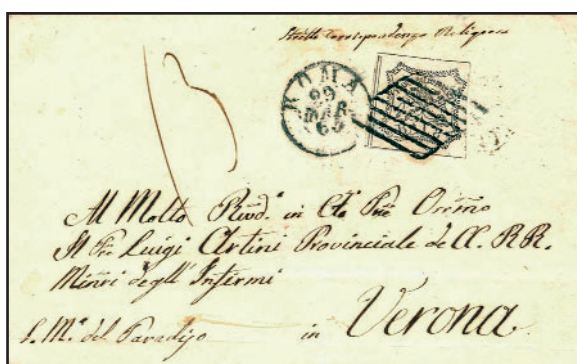 Stretta Corrispondenza Religiosa
ROMA
29
MAR
65
15
Al Molto Rivd.º in Cto Pñe Oññmo
Il Pre Luigi Artini Provinciale de CC. RR.
Minri degl' Infermi
S. Mª del Paradiso in Verona